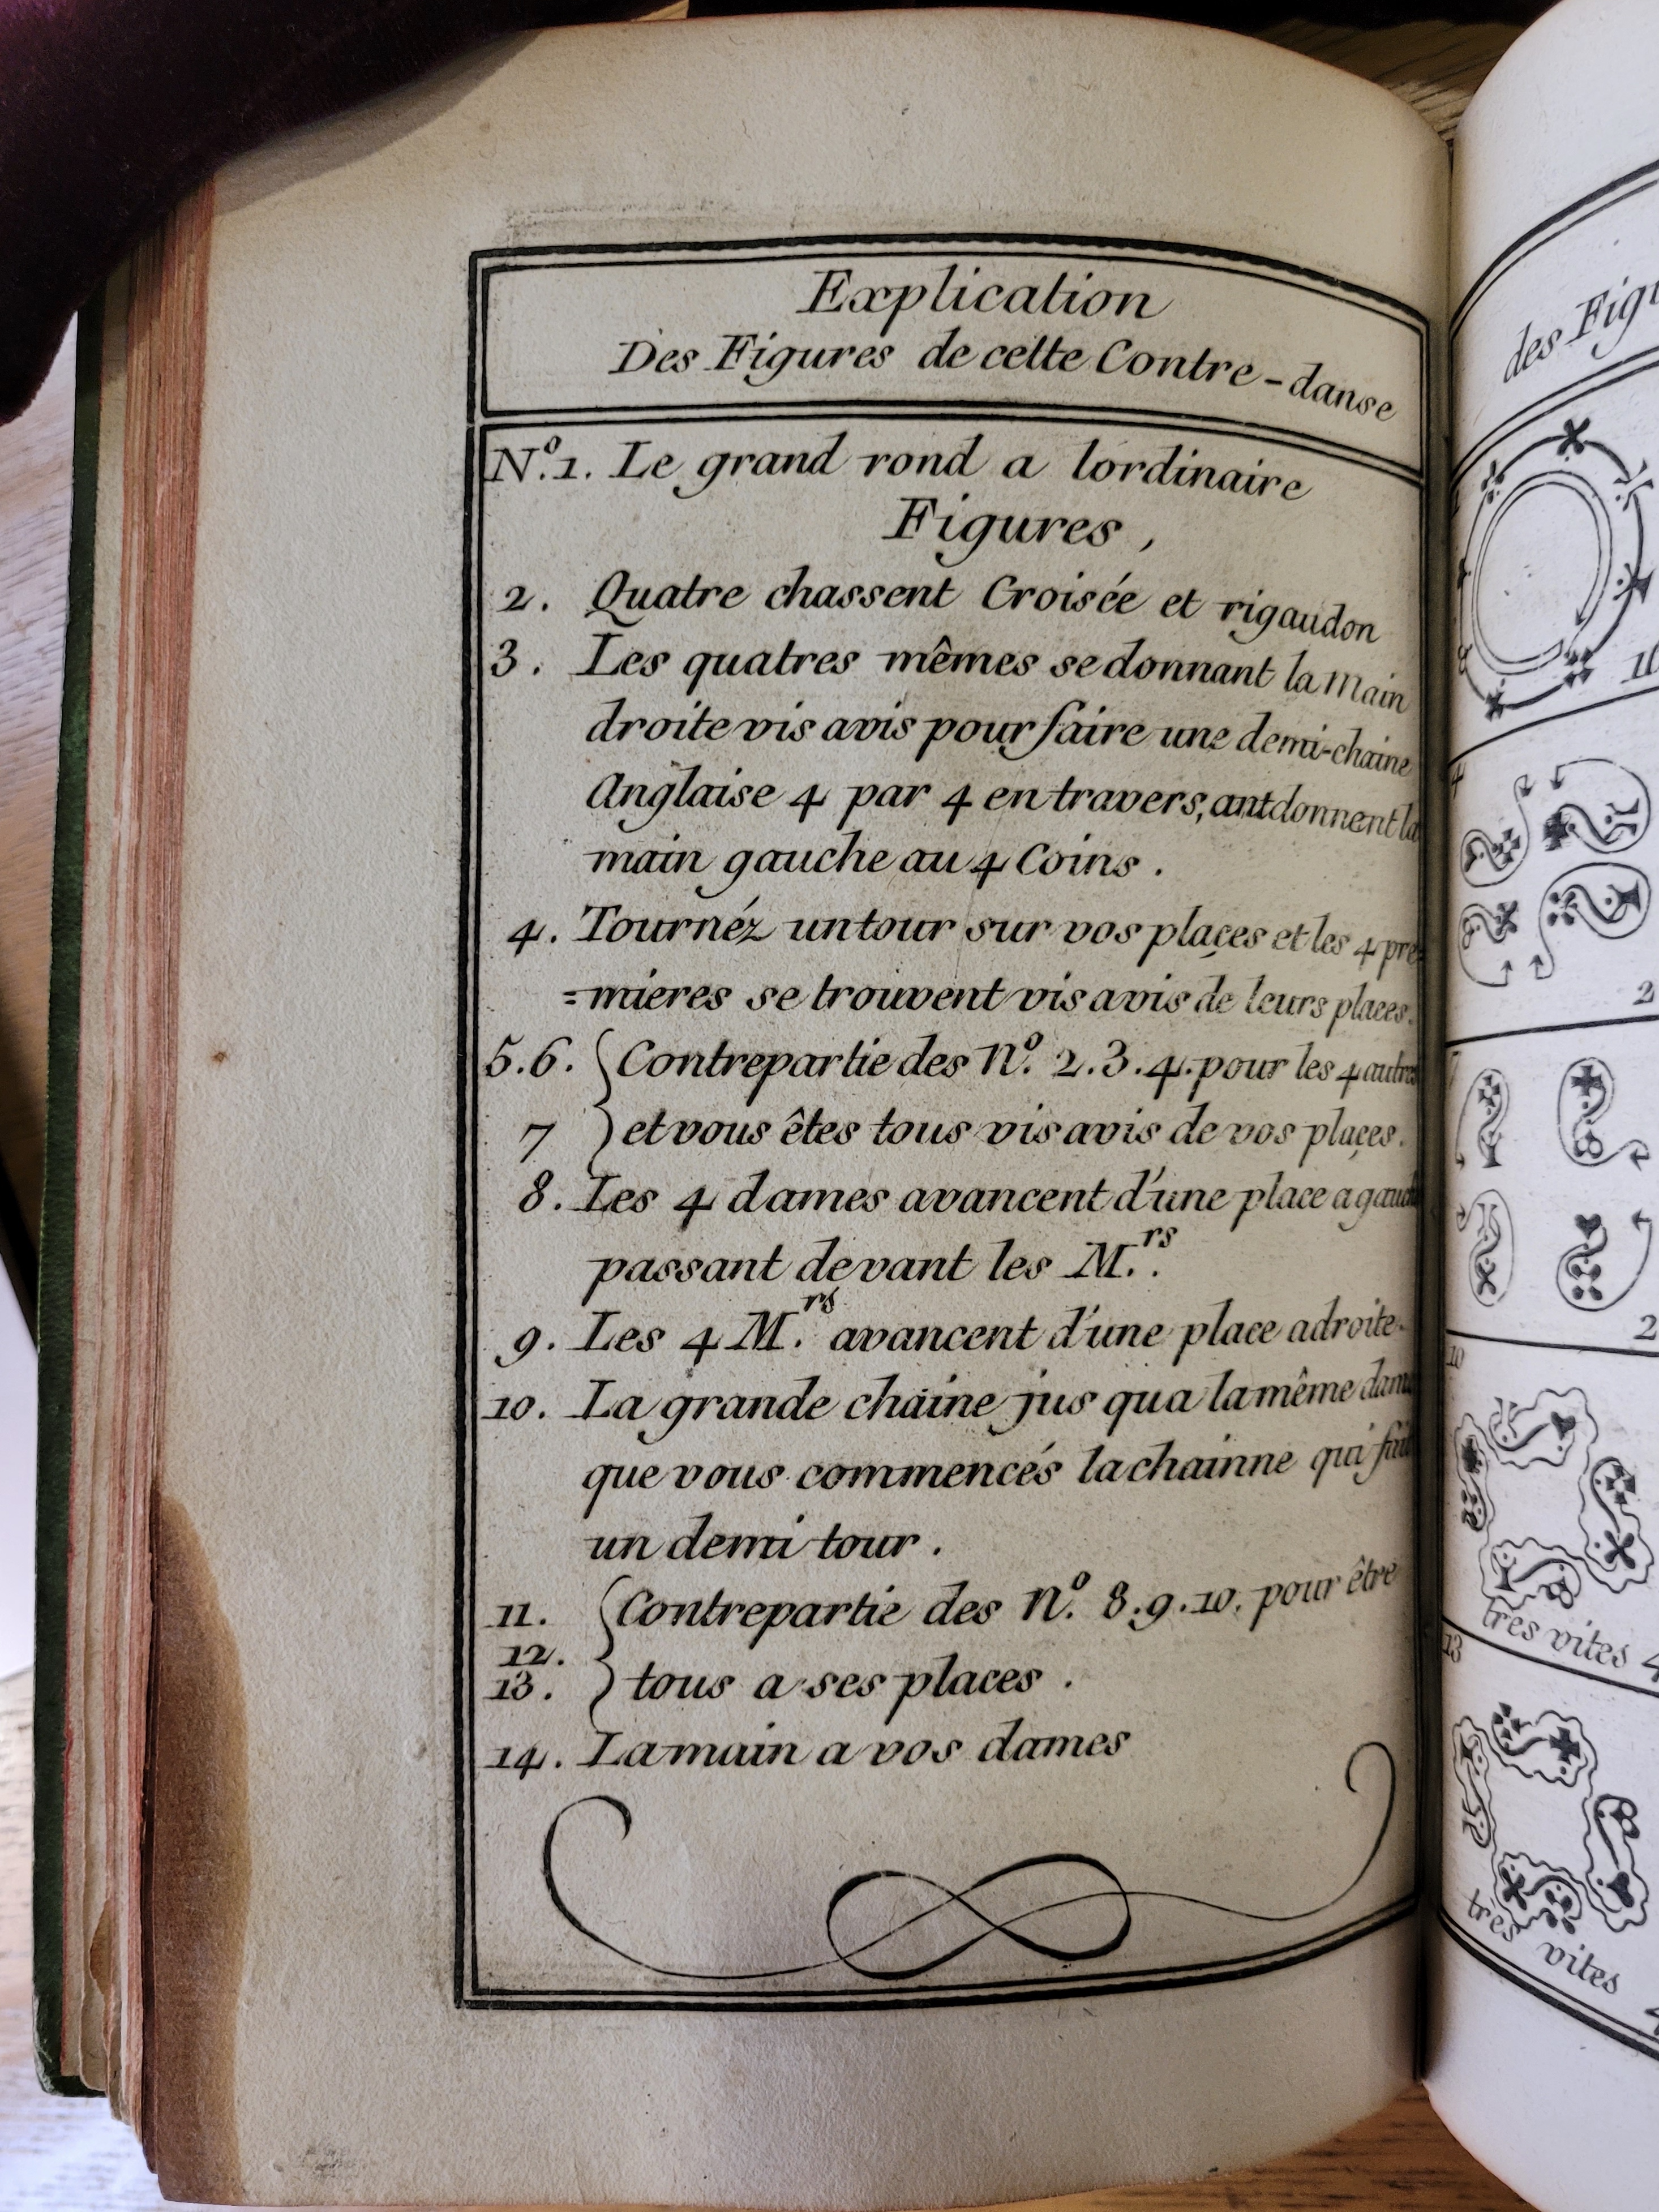 Explication
Des Figures de cette Contre-danse
N.º 1. Le grand rond a lordinaire
Figures,
2. Quatre chassent Croisée et rigaudon
3. Les quatres mêmes se donnant la main
droite vis avis pour faire une demi-chaine
Anglaise 4 par 4 en travers, antdonnent la
main gauche au 4 Coins.
4. Tournéz un tour sur vos places et les 4 pre
=mieres se trouvent vis avis de leurs places.
5.6. Contrepartie des N.º 2.3.4. pour les 4 autres
7 et vous êtes tous vis avis de vos places.
8. Les 4 dames avancent d'une place a gauch
passant devant les M.rs.
9. Les 4 M.rs avancent d'une place adroite.
10. La grande chaine jus qua la même dame
que vous commencés la chainne qui fait
un demi tour.
11. Contrepartie des N.º 8.9.10. pour être
12.
13. tous a ses places.
14. La main a vos dames
des Figu
4
2
2
10
tres vites 4
13
tres vites